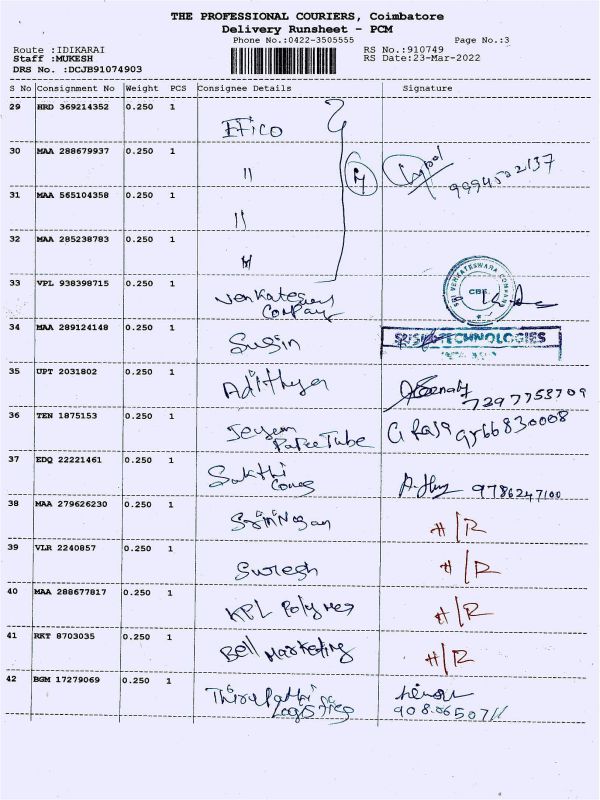 THE PROFESSIONAL COURIERS, Coimbatore
Delivery Runsheet - PCM
Phone No.:0422-3505555 Page No.:3
Route :IDIKARAI RS No.:910749
Staff :MUKESH RS Date:23-Mar-2022
DRS No. :DCJB91074903
S No Consignment No Weight PCS Consignee Details Signature
29 HRD 369214352 0.250 1
30 MAA 288679937 0.250 1 "
31 MAA 565104358 0.250 1 "
32 MAA 285238783 0.250 1 "
33 VPL 938398715 0.250 1 Company
SRI VENKATESWARA COMPANY
CBE.
34 MAA 289124148 0.250 1 Sugin TECHNOLOGIES
35 UPT 2031802 0.250 1 Adithya 7297753709
36 TEN 1875153 0.250 1 Tube G Raja 9566830008
37 EDQ 22221461 0.250 1 Sakthi 9786247100
38 MAA 279626230 0.250 1 H/R
39 VLR 2240857 0.250 1 Suresh H/R
40 MAA 288677817 0.250 1 KPL Polymes H/R
41 RKT 8703035 0.250 1 Bell Marketing H/R
42 BGM 17279069 0.250 1 Thirupathi